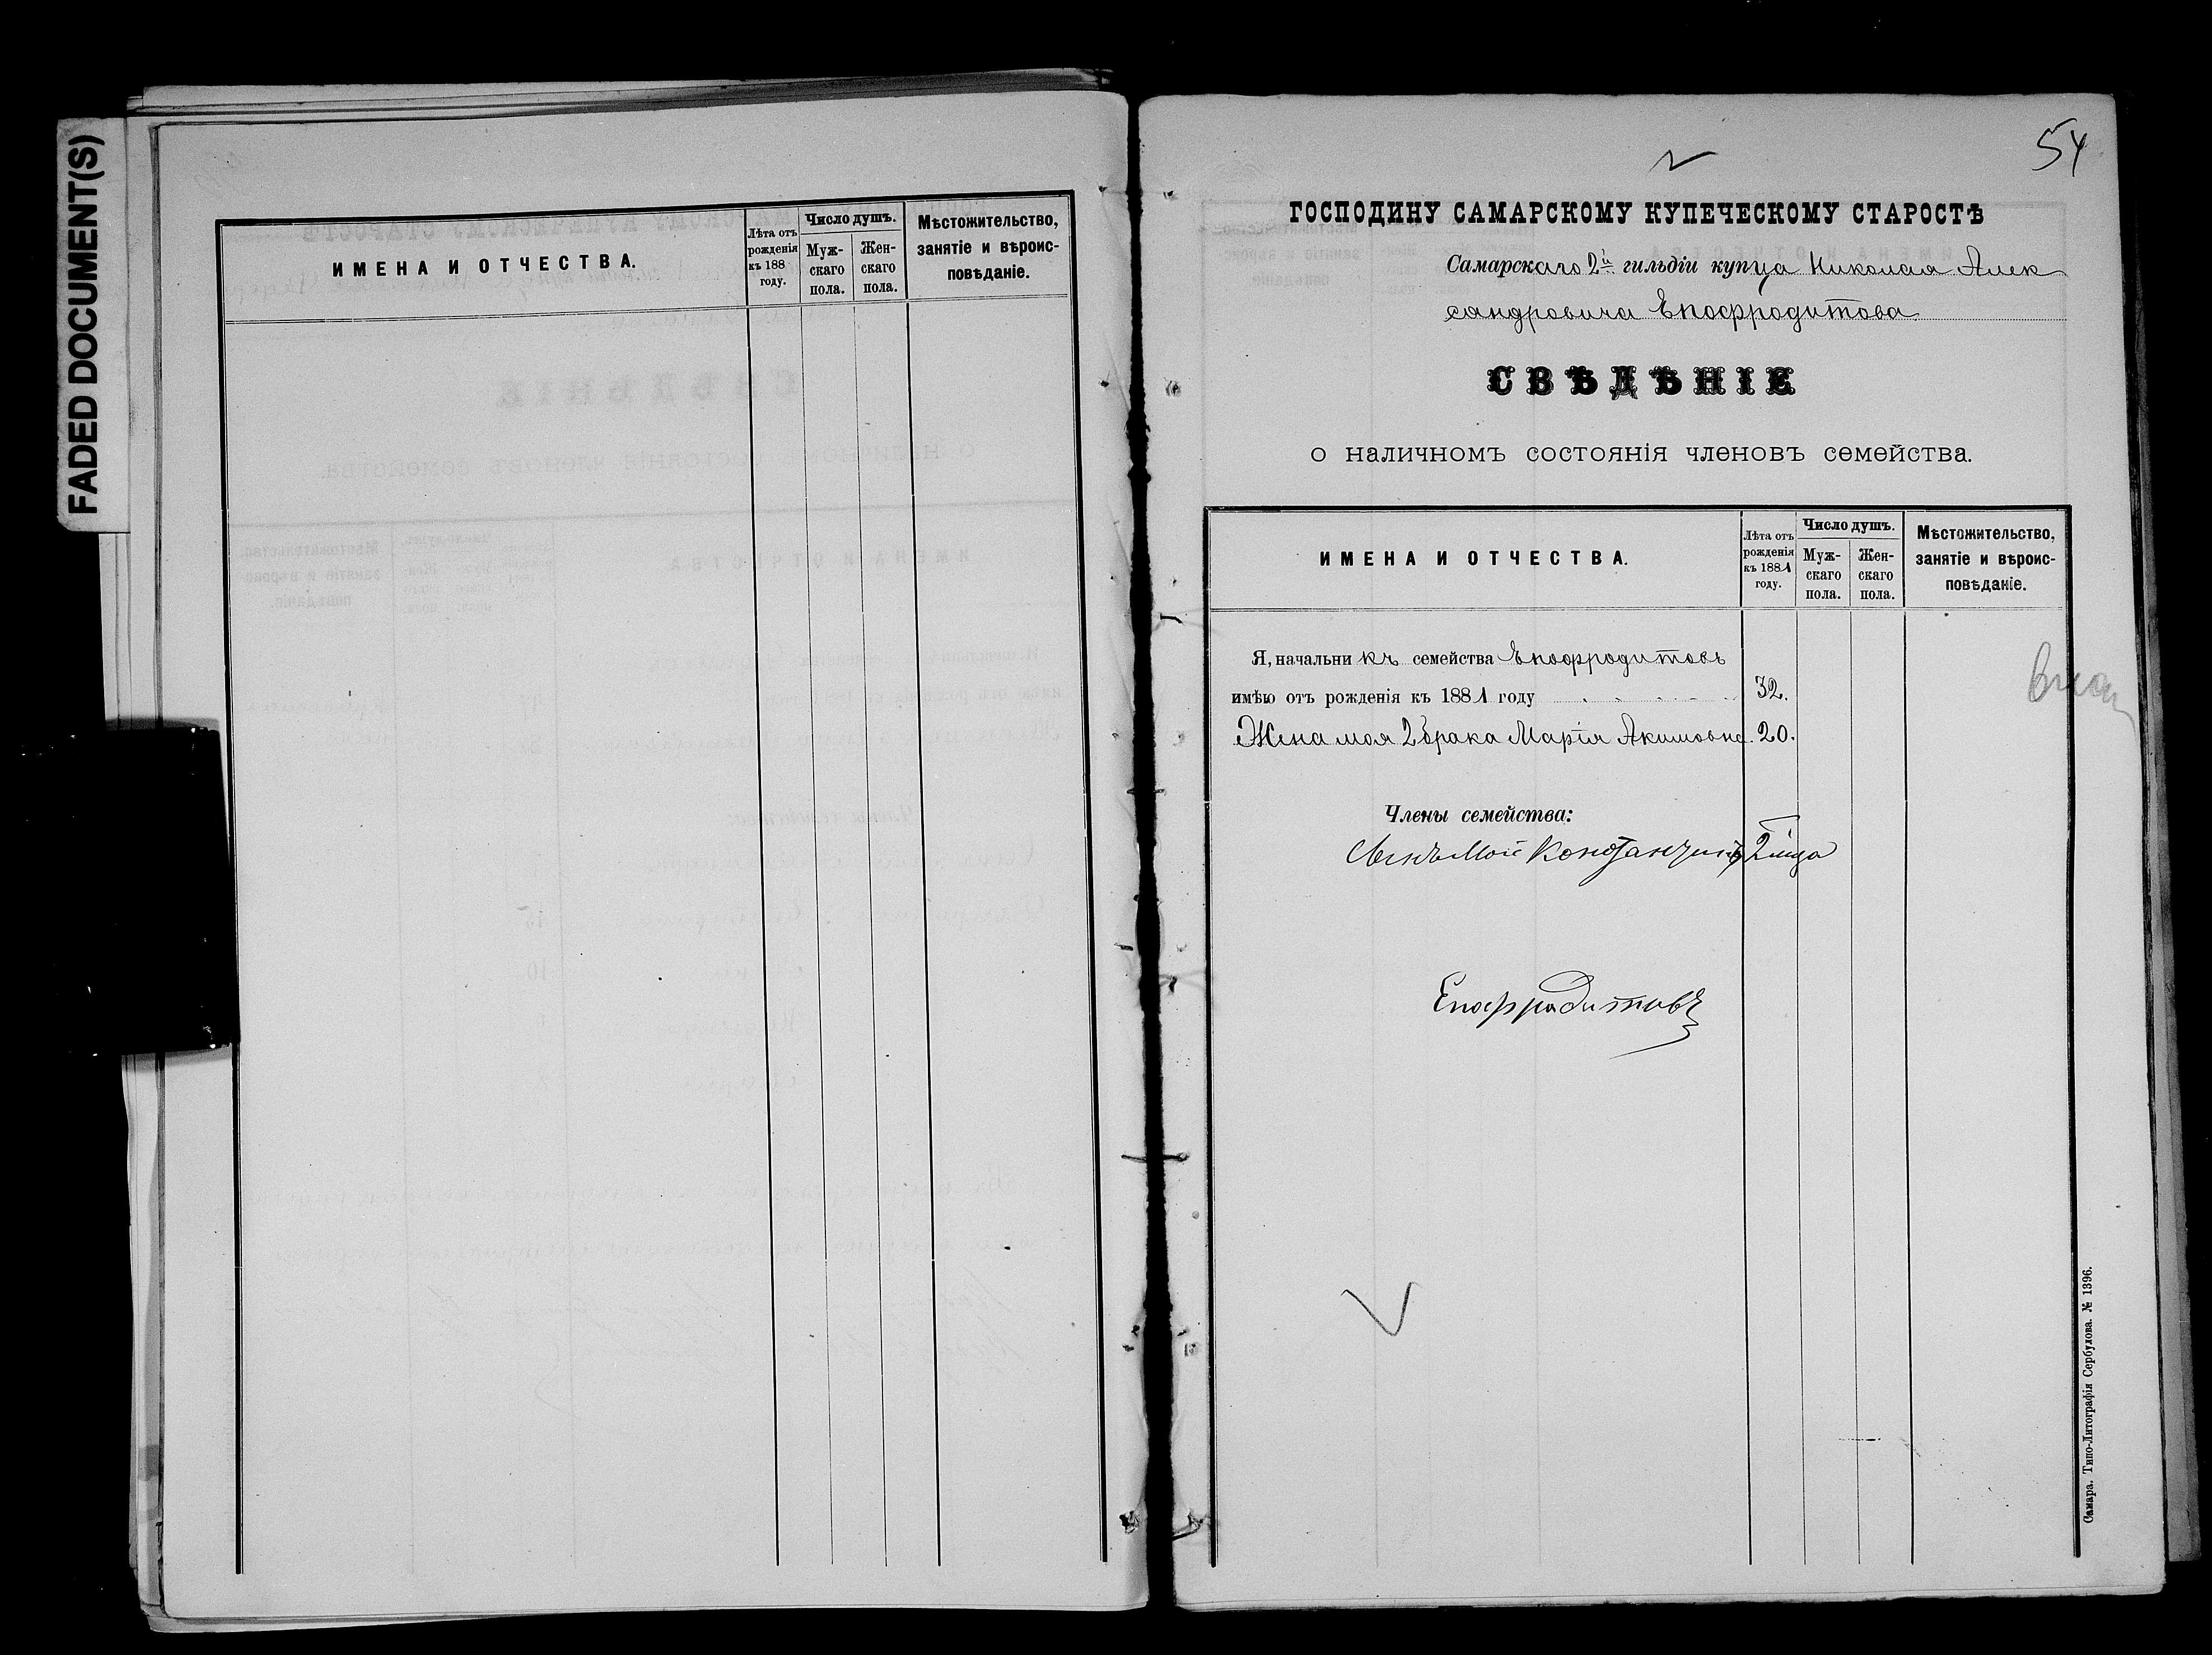 FADED DOCUMENT(S)
ИМЕНА И ОТЧЕСТВА.
Лѣта отъ рожденія къ 188 году.
Число душъ.
Мужскаго пола.
Женскаго пола.
Мѣстожительство, занятіе и вѣроисповѣданіе.
54
ГОСПОДИНУ САМАРСКОМУ КУПЕЧЕСКОМУ СТАРОСТѢ
Самарскаго 2й гильдіи купца Николая Алек
сандровича Епафродитова
СВѢДѢНІЕ
о наличномъ состоянія членовъ семейства.
ИМЕНА И ОТЧЕСТВА.
Лѣта отъ рожденія къ 1881 году.
Число душъ.
Мужскаго пола.
Женскаго пола.
Мѣстожительство, занятіе и вѣроисповѣданіе.
Я, начальникъ семейства Епафродитовъ
имѣю отъ рожденія къ 1881 году 32.
Жена моя 2 брака Марія Акимовна. 20.
Члены семейства:
Сынъ Мой Константинъ 2 мца
Епафродитовъ
Самара. Типо-Литографія Сербулова. № 1396.